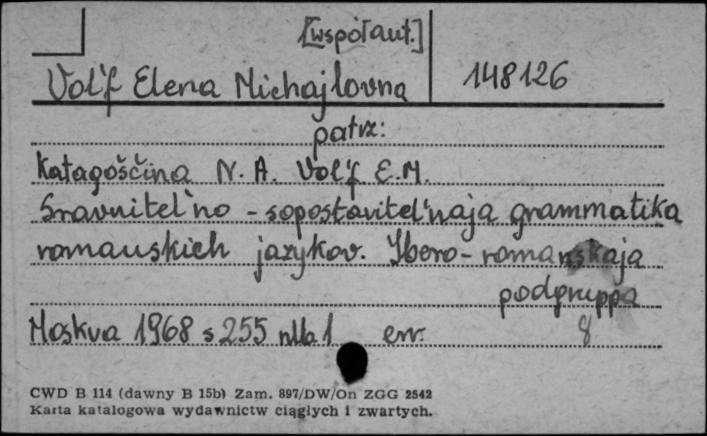 [współaut.]
Vol'f Elena Michajlovna
148126
patrz:
Katagoščina N. A. Vol'f E.M.
Sravnitel'no - sopostavitel'naja grammatika
romanskich jazykov. Ibero-romanskaja
podgruppa
Moskva 1968 s 255 nlb 1 err. 8
CWD B 114 (dawny B 15b) Zam. 897/DW/On ZGG 2542
Karta katalogowa wydawnictw ciągłych i zwartych.